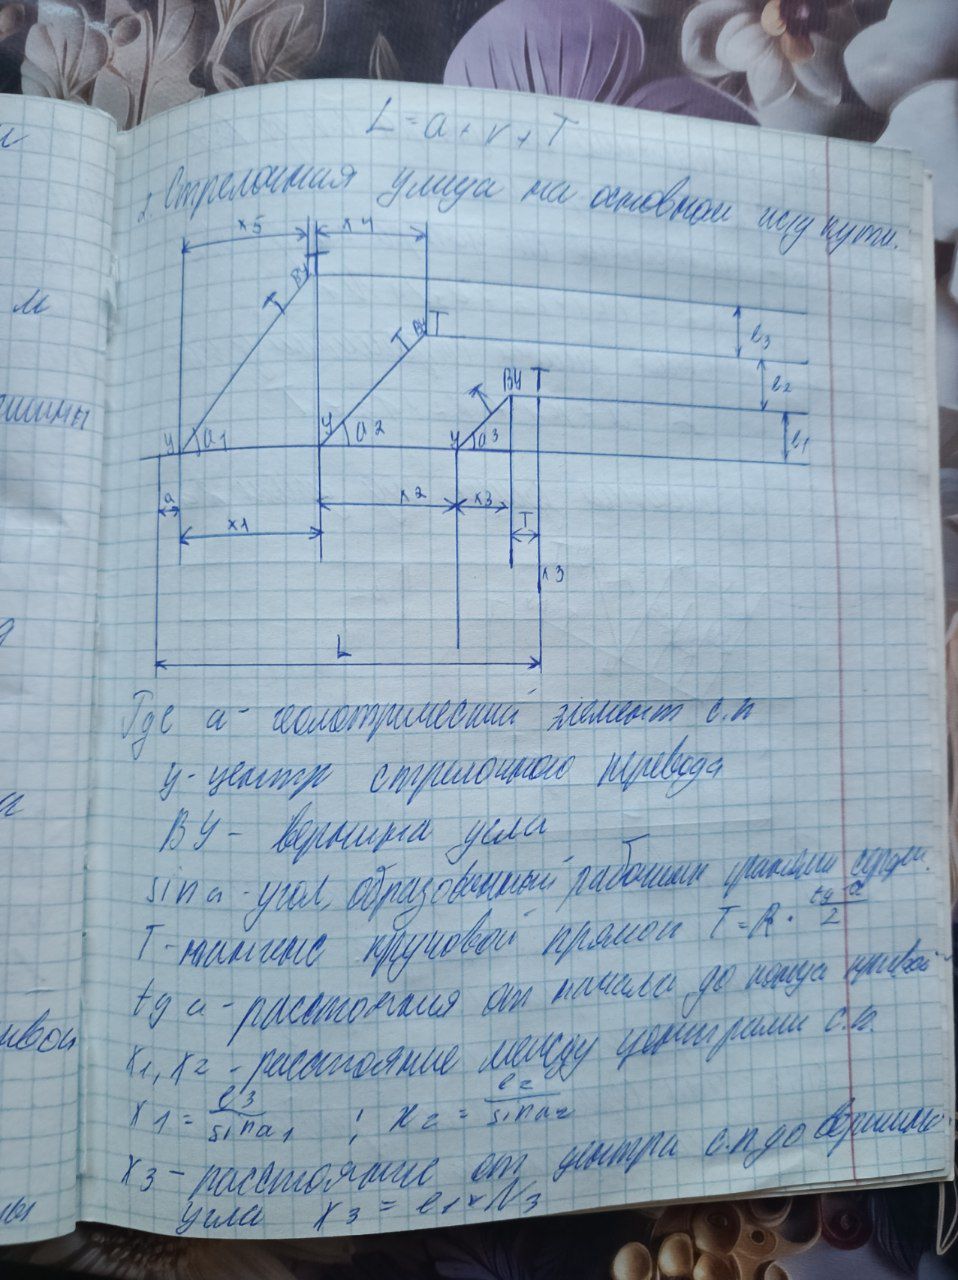 L = a + v + T
2. Стрелочная улица на основном пути.
x5 x4
ВУ Т
Т
Т ВУ Т
Т ВУ Т
l3
l2
l1
У a1 У a2 У a3
a x1 x2 x3 T
x3
L
Где a - геометрический элемент с.п
у - центр стрелочного перевода
ВУ - вершина угла
sin a - угол, образованный рабочими гранями сердеч.
T - тангенс круговой прямой T = R · tg a/2
tg a - расстояния от начала до конца кривой
x1, x2 - расстояние между центрами с.п.
x1 = l3/sin a1 ; x2 = l2/sin a2
x3 - расстояние от центра с.п до вершины
угла x3 = l1 × N3